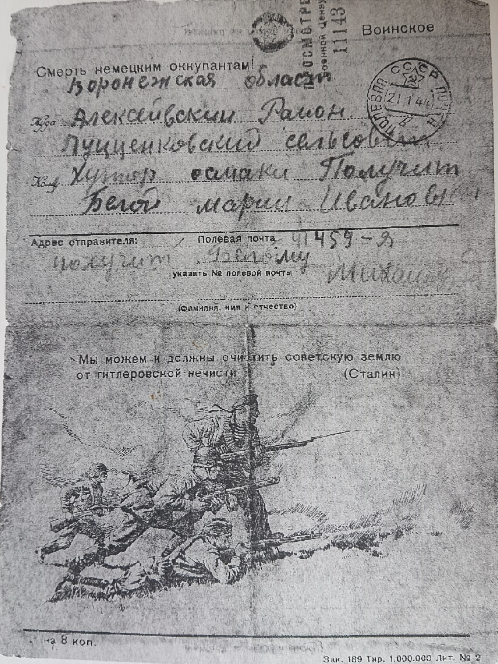 ПРОСМОТРЕНО
Военной Ценз
11143
Воинское
Смерть немецким оккупантам!
Воронежская область
Куда Алексеевский Район
Луценковский сельсовет
Кому Хутор осмаки Получит
Белой марии Ивановн
СССР
ПОЛЕВАЯ ПОЧТА
21 1 44
Адрес отправителя: Полевая почта 41459-Я
получит Белому
Михаил
указать № полевой почты
(Фамилия, имя и отчество)
„Мы можем и должны очистить советскую землю
от гитлеровской нечисти" (Сталин)
на 8 коп.
Зак. 189 Тир. 1.000.000 Лит. № 2